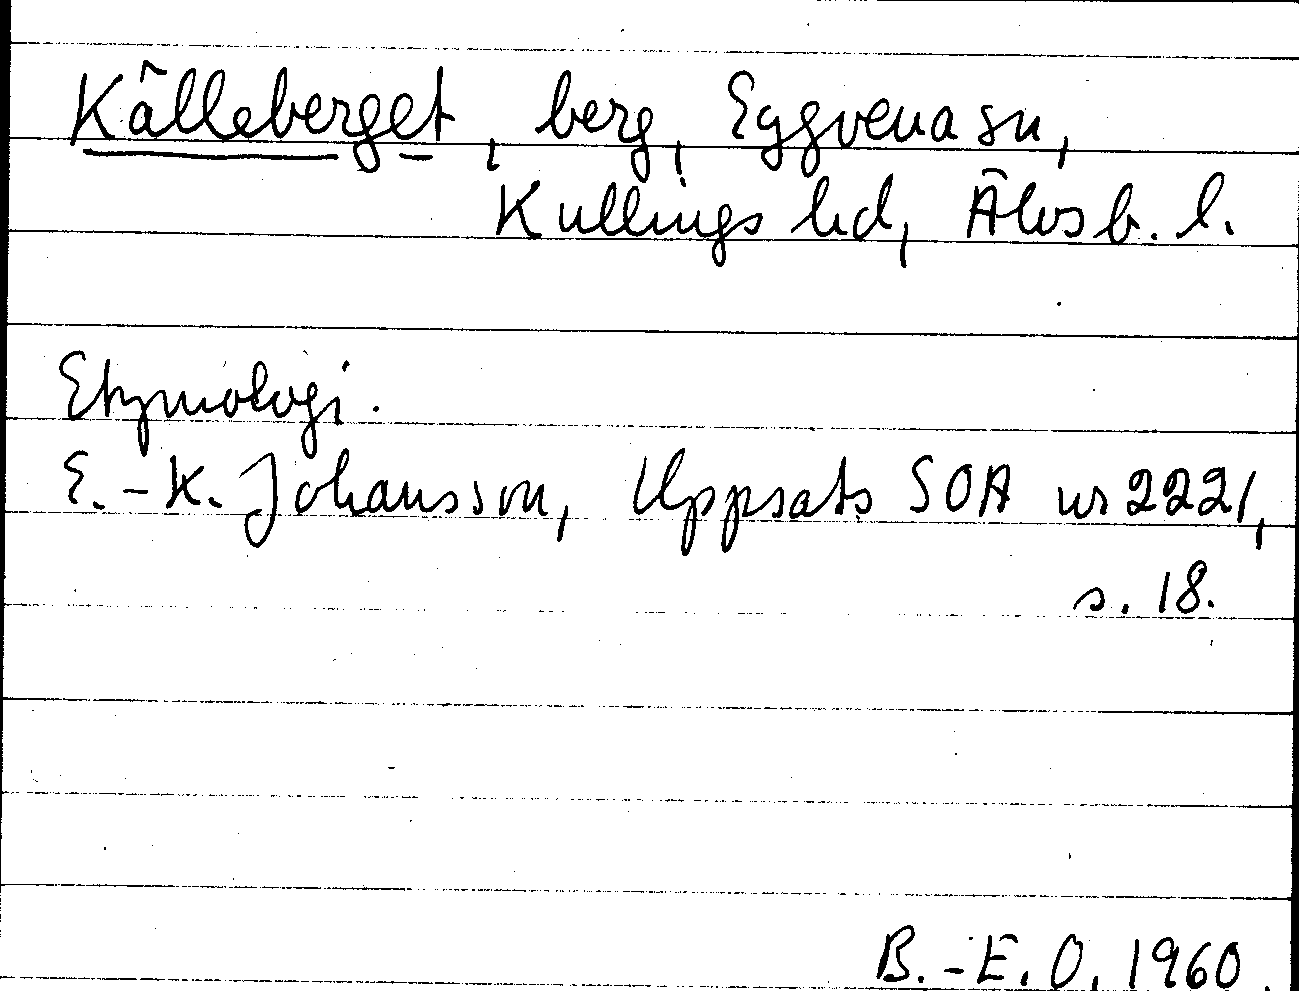 Källeberget, berg, Eggvena sn,
Kullings hd, Älvsb. l.
Etymologi.
E.-K. Johansson, Uppsats SOA nr 2221,
s. 18.
B.-E. O. 1960.